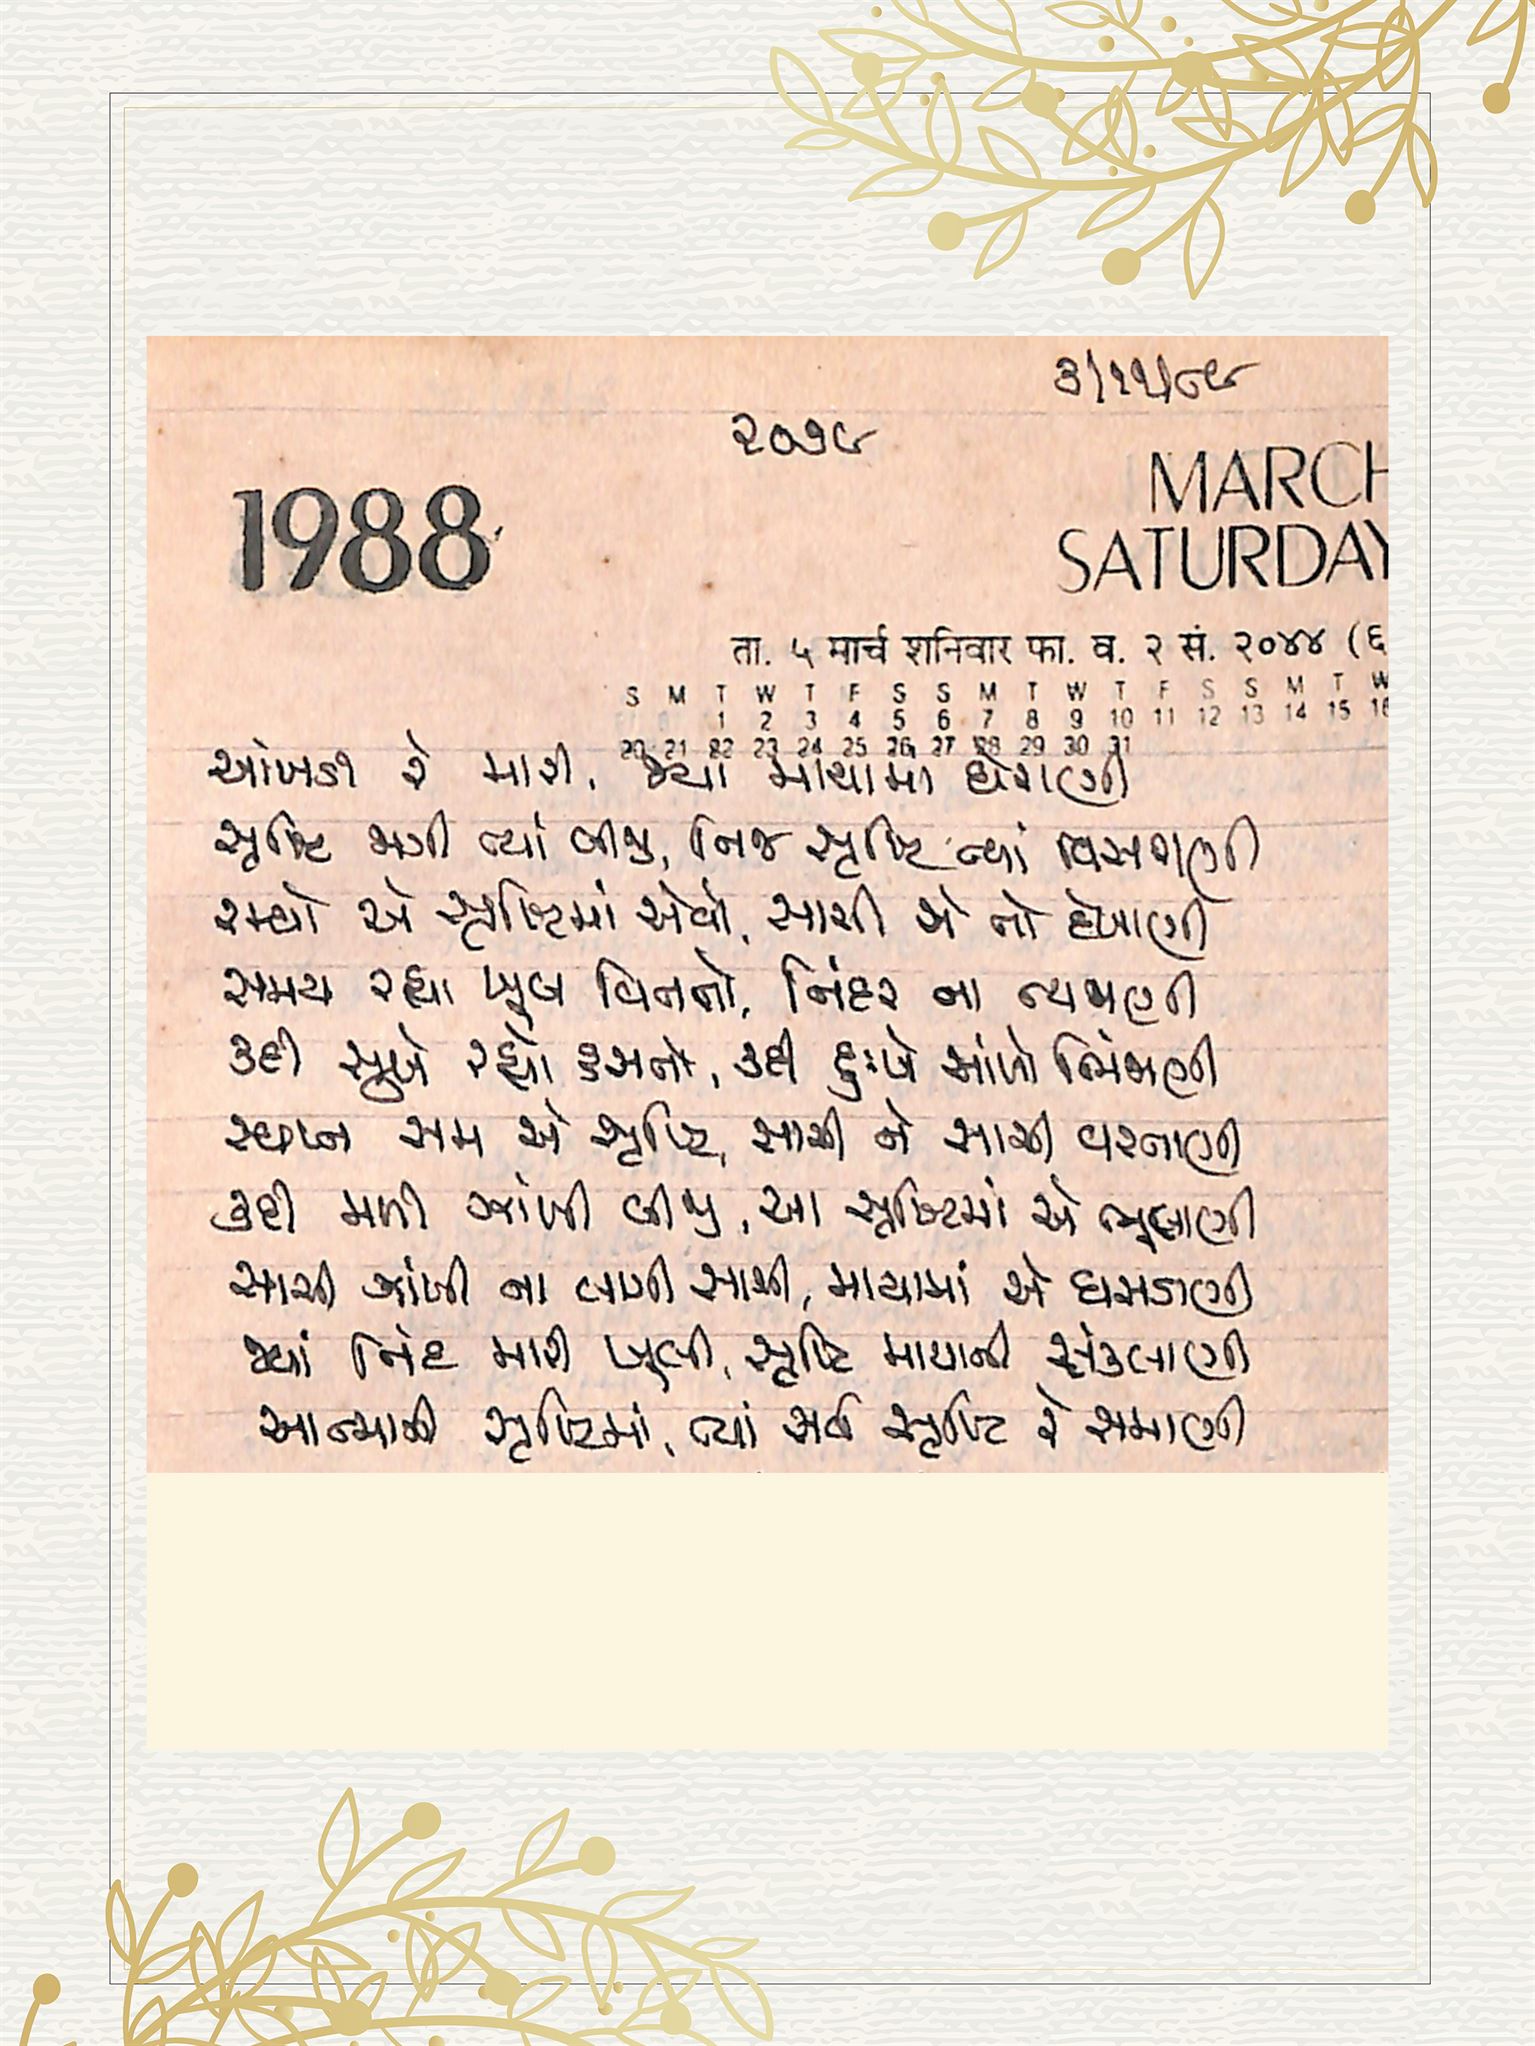 ૩/૧૧/૮૯
૨૦૭૯
1988
MARCH
SATURDAY
ता. ५ मार्च शनिवार फा. व. २ सं. २०४४ (६
S M T W T F S S M T W T F S S M T W
1 2 3 4 5 6 7 8 9 10 11 12 13 14 15 16
20 21 22 23 24 25 26 27 28 29 30 31
આંખડી રે મારી, જ્યાં માયામાં ઘેરાણી
સૃષ્ટિ જાગી ત્યાં બીજી, નિજ સૃષ્ટિ ત્યાં વિસરાણી
રમ્યો એ સૃષ્ટિમાં એવો, સાચી એ તો દેખાણી
સમય રહ્યા ખૂબ વિતતો, નિંદર ના ત્યજાણી
કદી સુખે રહ્યો હસતો, કદી દુઃખે આંખો ભિંજાણી
સ્વપ્ન સમ એ સૃષ્ટિ, સાચી ને સાચી વરતાણી
કદી મળી ઝાંખી બીજી, આ સૃષ્ટિમાં એ ભૂલાણી
સાચી ઝાંખી ના લાગી સાચી, માયામાં એ ઘસડાણી
જ્યાં નિંદ મારી ખૂલી, સૃષ્ટિ માયાની સંકેલાણી
આત્માની સૃષ્ટિમાં, ત્યાં સર્વ સૃષ્ટિ રે સમાણી